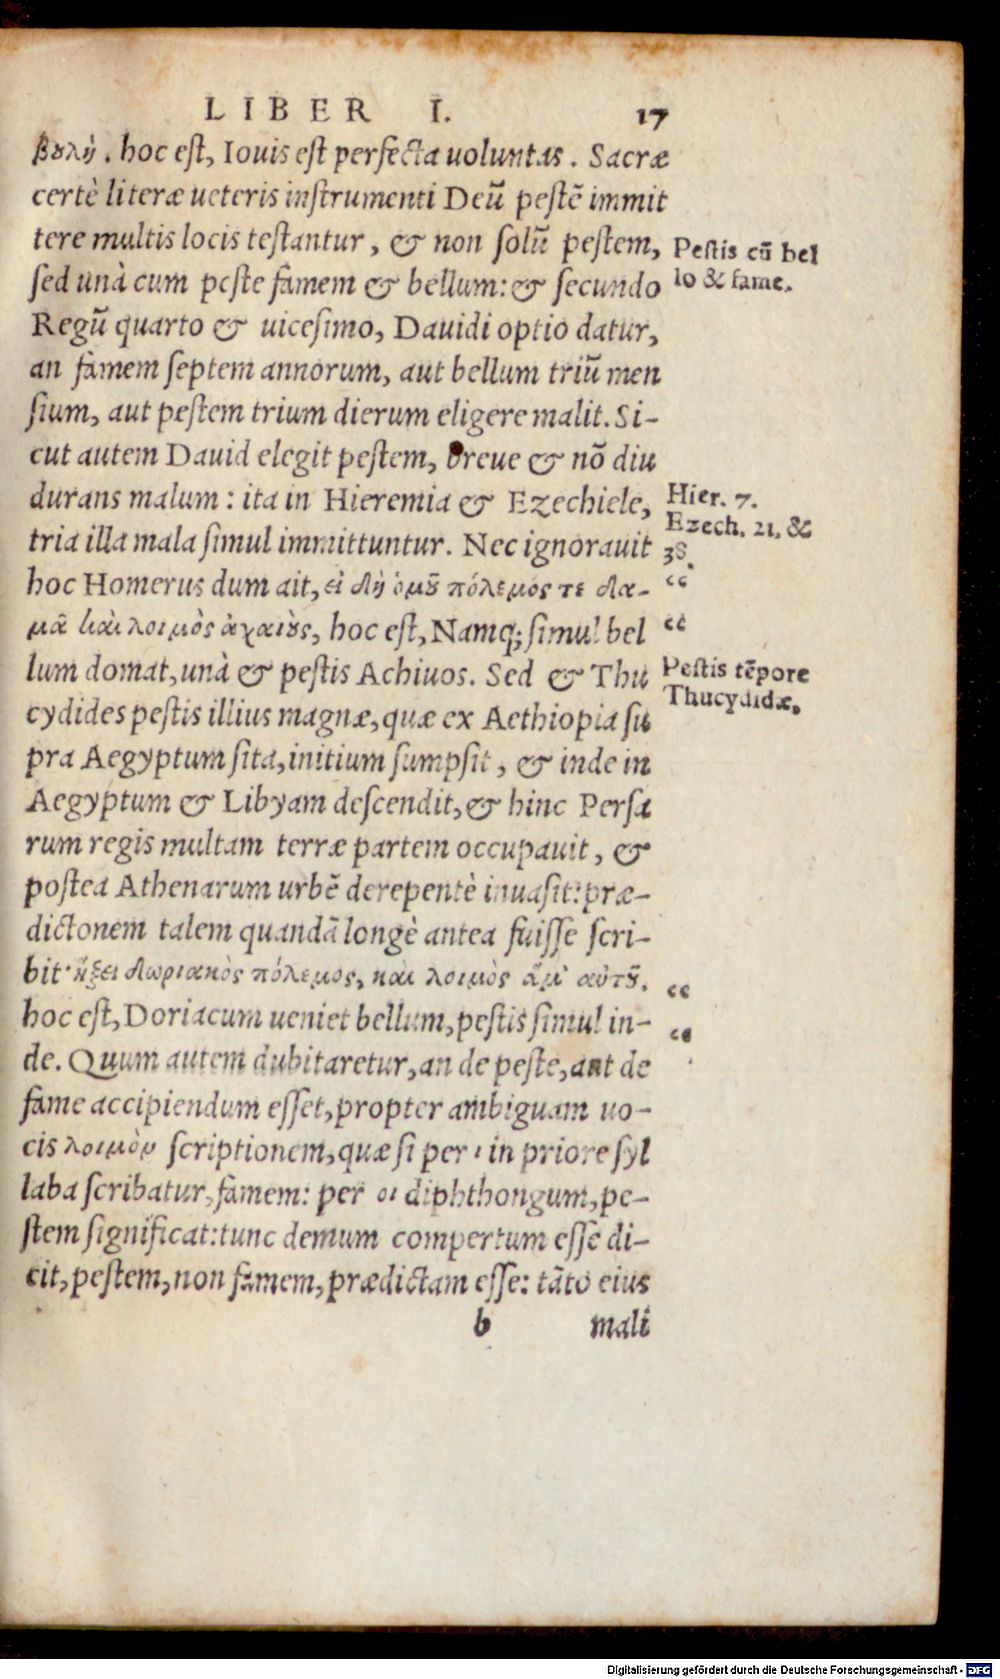 LIBER I. 17
βουλή. hoc est, Iouis est perfecta uoluntas. Sacræ
certè literæ ueteris instrumenti Deū pestē immit
tere multis locis testantur, & non solū pestem,
Pestis cū bel
lo & fame.
sed unà cum peste famem & bellum: & secundo
Regū quarto & uicesimo, Dauidi optio datur,
an famem septem annorum, aut bellum triū men
sium, aut pestem trium dierum eligere malit. Si-
cut autem Dauid elegit pestem, breue & nō diu
durans malum: ita in Hieremia & Ezechiele,
Hier. 7.
Ezech. 21, &
38.
tria illa mala simul immittuntur. Nec ignorauit
hoc Homerus dum ait, εἰ δὴ ὁμοῦ πόλεμός τε δα-
“
μᾷ καὶ λοιμὸς ἀχαιούς, hoc est, Namq; simul bel
“
lum domat, unà & pestis Achiuos. Sed & Thu
Pestis tēpore
Thucydidæ.
cydides pestis illius magnæ, quæ ex Aethiopia su
pra Aegyptum sita, initium sumpsit, & inde in
Aegyptum & Libyam descendit, & hinc Persa
rum regis multam terræ partem occupauit, &
postea Athenarum urbē derepentè inuasit: præ-
dictonem talem quandā longè antea fuisse scri-
bit· ἥξει δωριακὸς πόλεμος, καὶ λοιμὸς ἅμ' αὐτοῦ.
“
hoc est, Doriacum ueniet bellum, pestis simul in-
“
de. Quum autem dubitaretur, an de peste, aut de
fame accipiendum esset, propter ambiguam uo-
cis λοιμὸν scriptionem, quæ si per ι in priore syl
laba scribatur, famem: per οι diphthongum, pe-
stem significat: tunc demum compertum esse di-
cit, pestem, non famem, prædictam esse: tāto eius
b mali
Digitalisierung gefördert durch die Deutsche Forschungsgemeinschaft - DFG